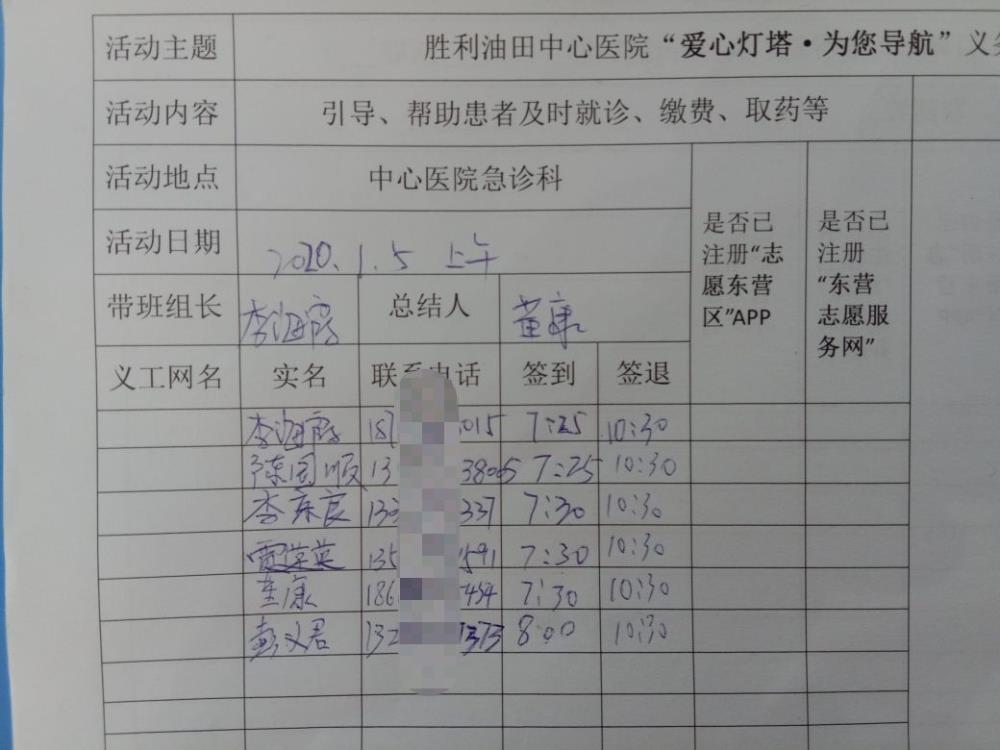 活动主题 胜利油田中心医院“爱心灯塔·为您导航”义
活动内容 引导、帮助患者及时就诊、缴费、取药等
活动地点 中心医院急诊科
活动日期 2020.1.5 上午
是否已注册“志愿东营区”APP
是否已注册“东营志愿服务网”
带班组长 李海 总结人 董康
义工网名 实名 联系电话 签到 签退
李海 18 015 7:25 10:30
陈国顺 13 3805 7:25 10:30
李 良 13 337 7:30 10:30
贾 英 135 591 7:30 10:30
董康 186 454 7:30 10:30
彭文君 132 1373 8:00 10:30